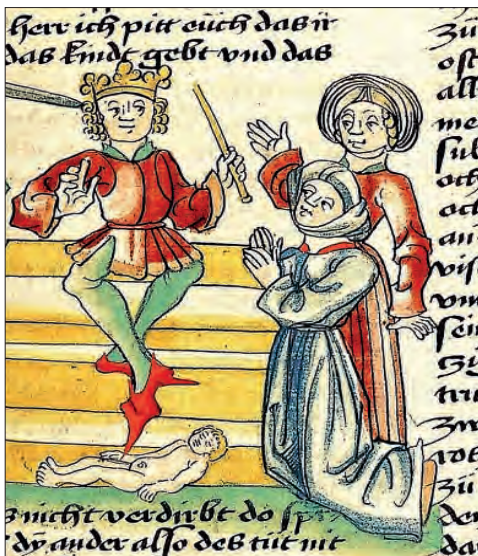 herr ich pitt eüch das ir
das kindt gebt vnd das
s nicht verdirbt do spr
dy ander also des tüt nit
zü
oft
all
me
sul
och
an
sein
zw
rot
zü
den
da